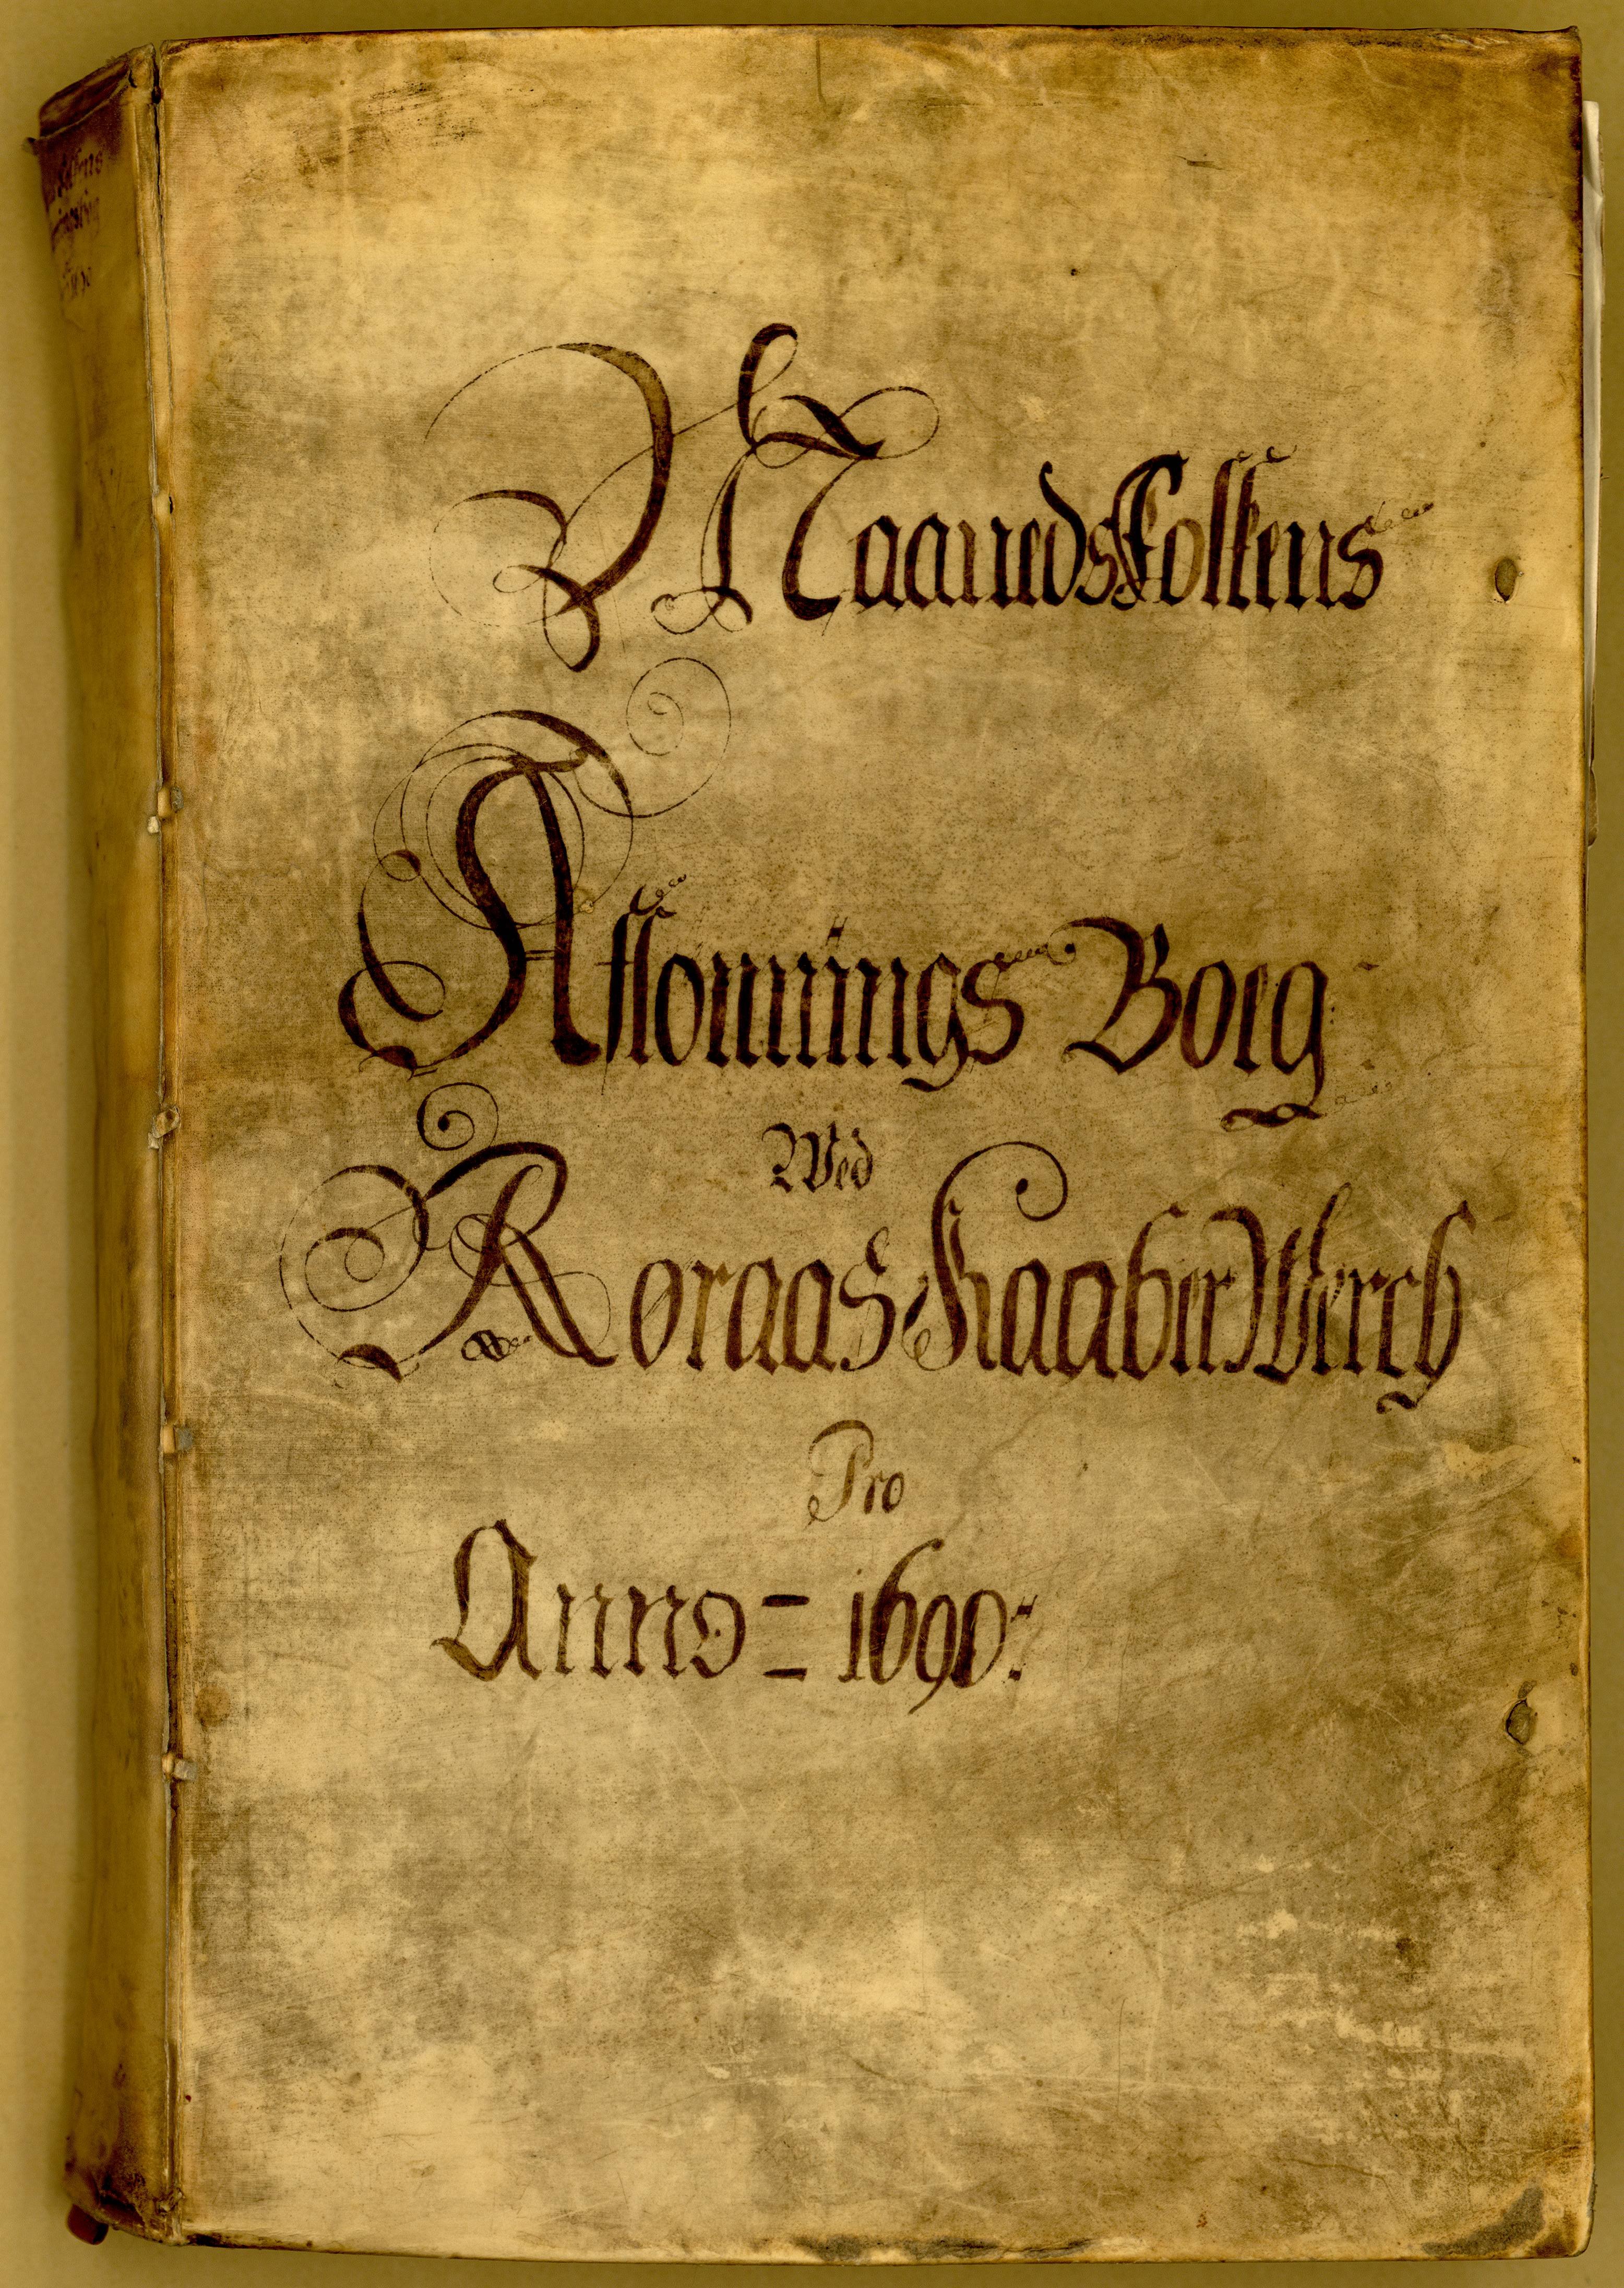 MaanedsFolkens
Aflønnings Boeg
Wed
Røraas KaaberWerch
Pro
Anno = 1690